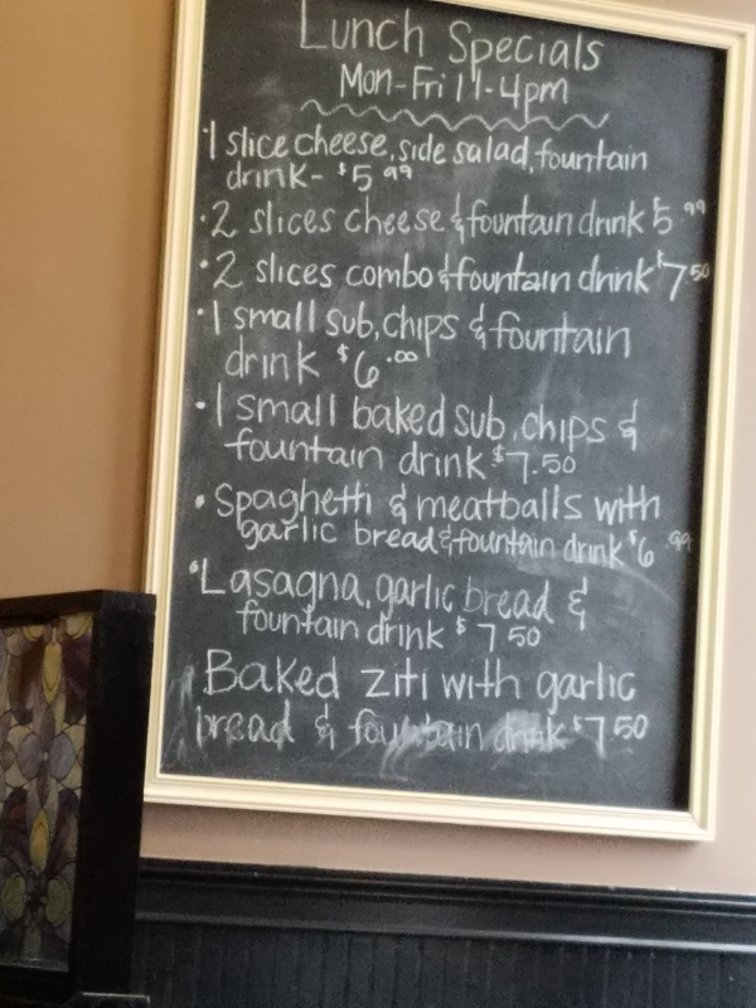 Lunch Specials
Mon-Fri 11-4pm
·1 slice cheese, side salad, fountain
drink- $5.99
·2 slices cheese & fountain drink $5.99
·2 slices combo & fountain drink $7.50
·1 small sub, chips & fountain
drink $6.00
·1 small baked sub, chips &
fountain drink $7.50
·Spaghetti & meatballs with
garlic bread & fountain drink $6.99
·Lasagna, garlic bread &
fountain drink $7.50
Baked ziti with garlic
bread & fountain drink $7.50